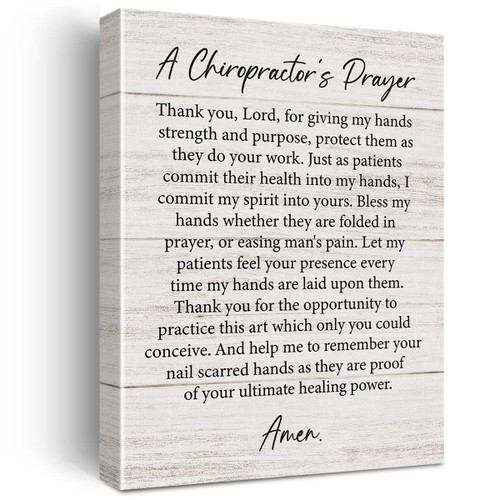 A Chiropractor's Prayer
Thank you, Lord, for giving my hands
strength and purpose, protect them as
they do your work. Just as patients
commit their health into my hands, I
commit my spirit into yours. Bless my
hands whether they are folded in
prayer, or easing man's pain. Let my
patients feel your presence every
time my hands are laid upon them.
Thank you for the opportunity to
practice this art which only you could
conceive. And help me to remember your
nail scarred hands as they are proof
of your ultimate healing power.
Amen.